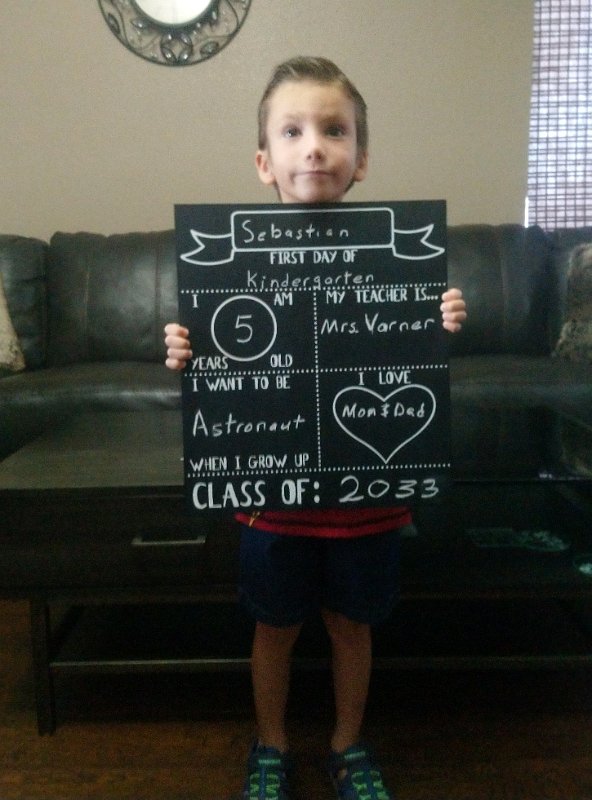 Sebastian
FIRST DAY OF
Kindergarten
I AM
5
YEARS OLD
MY TEACHER IS...
Mrs. Varner
I WANT TO BE
Astronaut
WHEN I GROW UP
I LOVE
Mom & Dad
CLASS OF: 2033